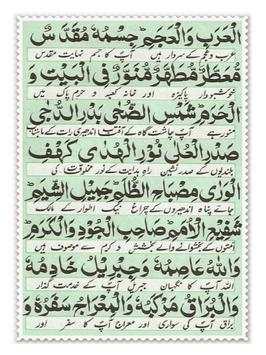 الْعَرَبِ وَالْعَجَمِ جِسْمُهٗ مُقَدَّسٌ
عرب و عجم کے سردار ہیں آپ کا جسم نہایت مقدس
مُعَطَّرٌ مُّطَهَّرٌ مُّنَوَّرٌ فِی الْبَیْتِ وَ
خوشبودار پاکیزہ اور خانہ کعبہ و حرم پاک میں
الْحَرَمِ شَمْسِ الضُّحٰی بَدْرِ الدُّجٰی
منور ہے آپ چاشت گاہ کے آفتاب اندھیری رات کے ماہتاب
صَدْرِ الْعُلٰی نُوْرِ الْهُدٰی کَهْفِ
بلندیوں کے صدر نشین راہ ہدایت کے نور مخلوقات کی
الْوَرٰی مِصْبَاحِ الظُّلَمِ جَمِیْلِ الشِّیَمِ
جائے پناہ اندھیروں کے چراغ نیک اطوار کے مالک
شَفِیْعِ الْاُمَمِ صَاحِبِ الْجُوْدِ وَالْکَرَمِ
امتوں کے بخشوانے والے بخشش و کرم سے موصوف ہیں
وَاللّٰهُ عَاصِمُهٗ وَجِبْرِیْلُ خَادِمُهٗ
اللہ آپ کا نگہبان جبریل آپ کے خدمت گذار
وَالْبُرَاقُ مَرْکَبُهٗ وَالْمِعْرَاجُ سَفَرُهٗ وَ
براق آپ کی سواری اور معراج آپ کا سفر اور